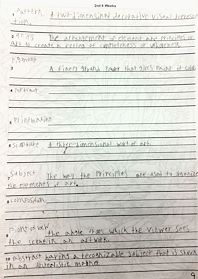 2nd 6 Weeks
Pattern A two-dimensional decorative visual
tion.
Unity The arrangement of elements and principles of
art to create a feeling of completeness or wholeness.
Pigment
A finely ground powder that gives paint it color
Portrait
Printmaking
Sculpture A three-dimensional work of art.
Subject The way the principles are used to organize
the elements of art.
Composition
Point of view
The angle from which the viewer sees
the in an artwork
Abstract having a recognizable subject that is shown
in an manner
9